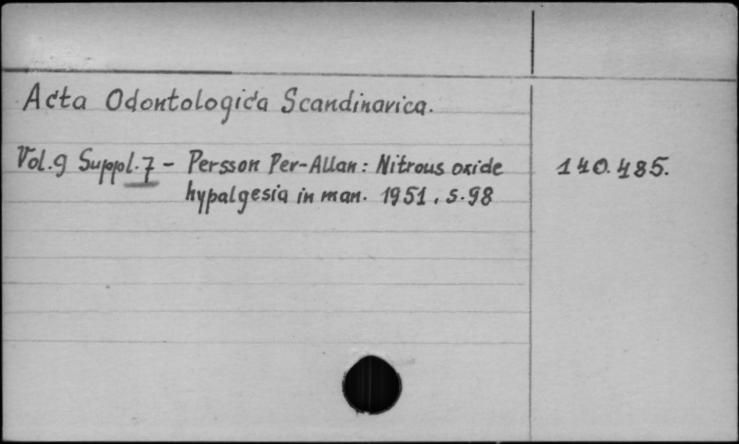 Acta Odontologica Scandinavica.
Vol. 9 Suppl. 7 - Persson Per-Allan: Nitrous oxide 140.485.
hypalgesia in man. 1951. s. 98